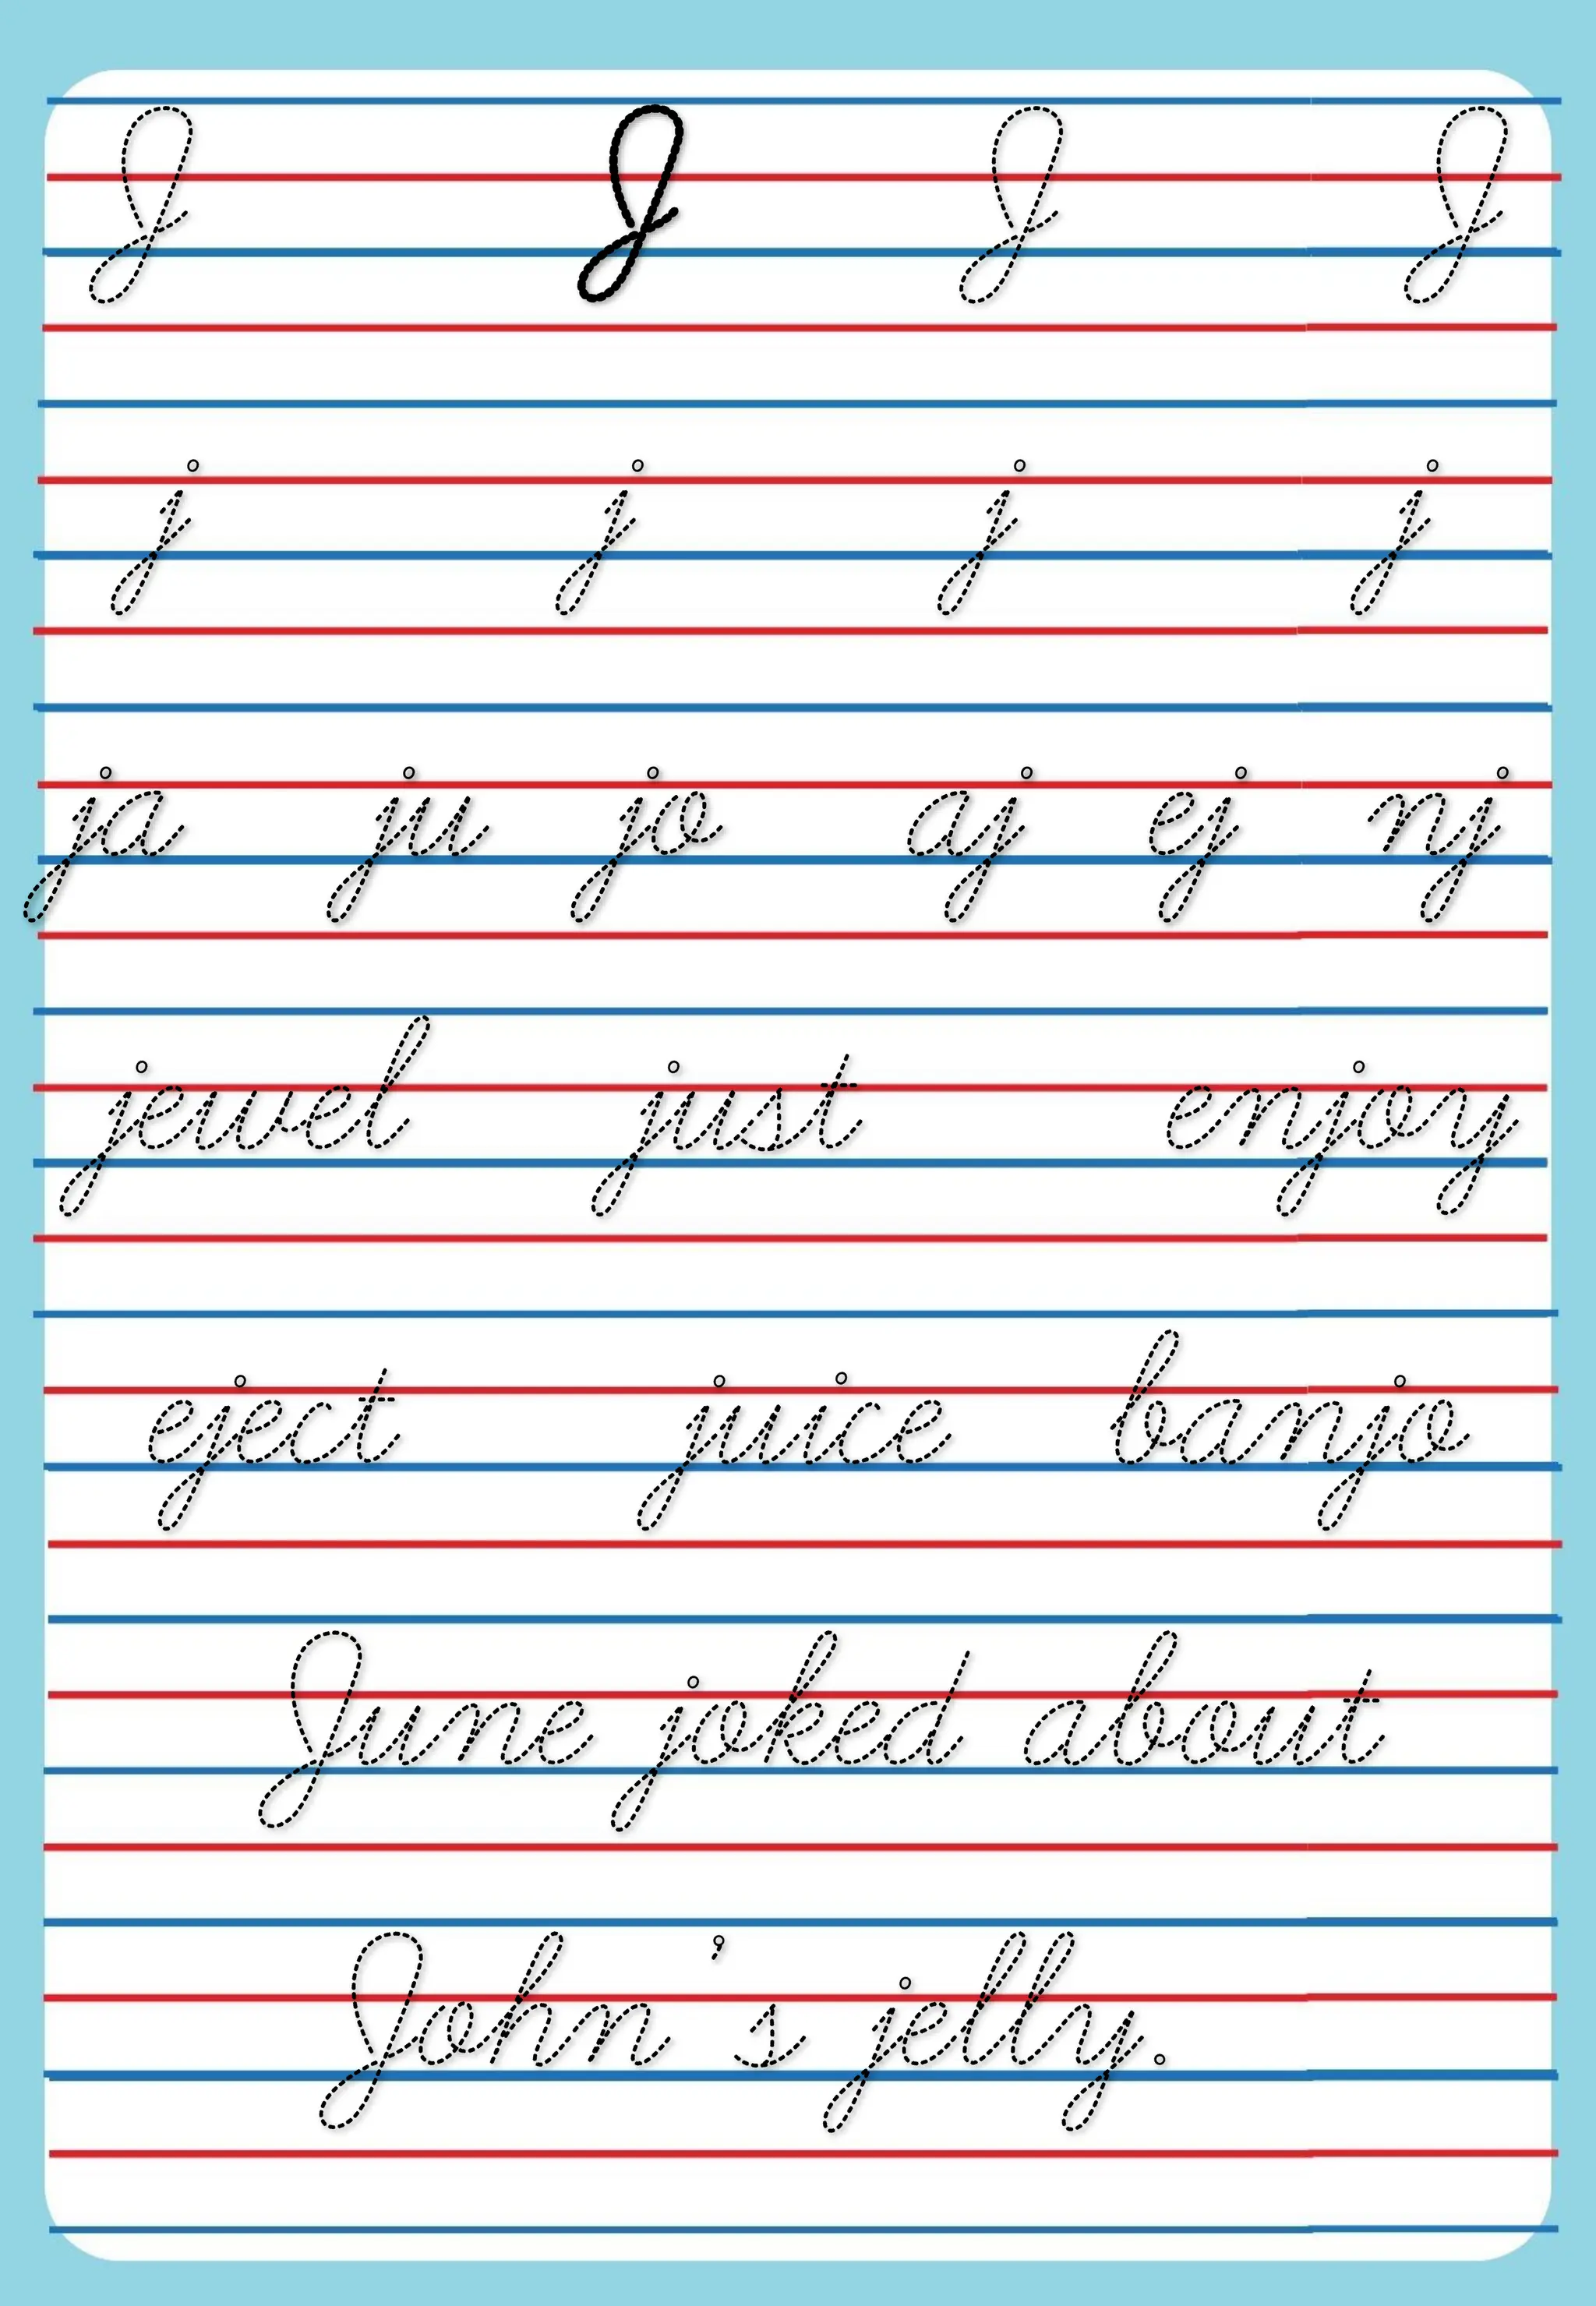 J J J J
j j j j
ja ju jo aj ej nj
jewel just enjoy
eject juice banjo
June joked about
John's jelly.